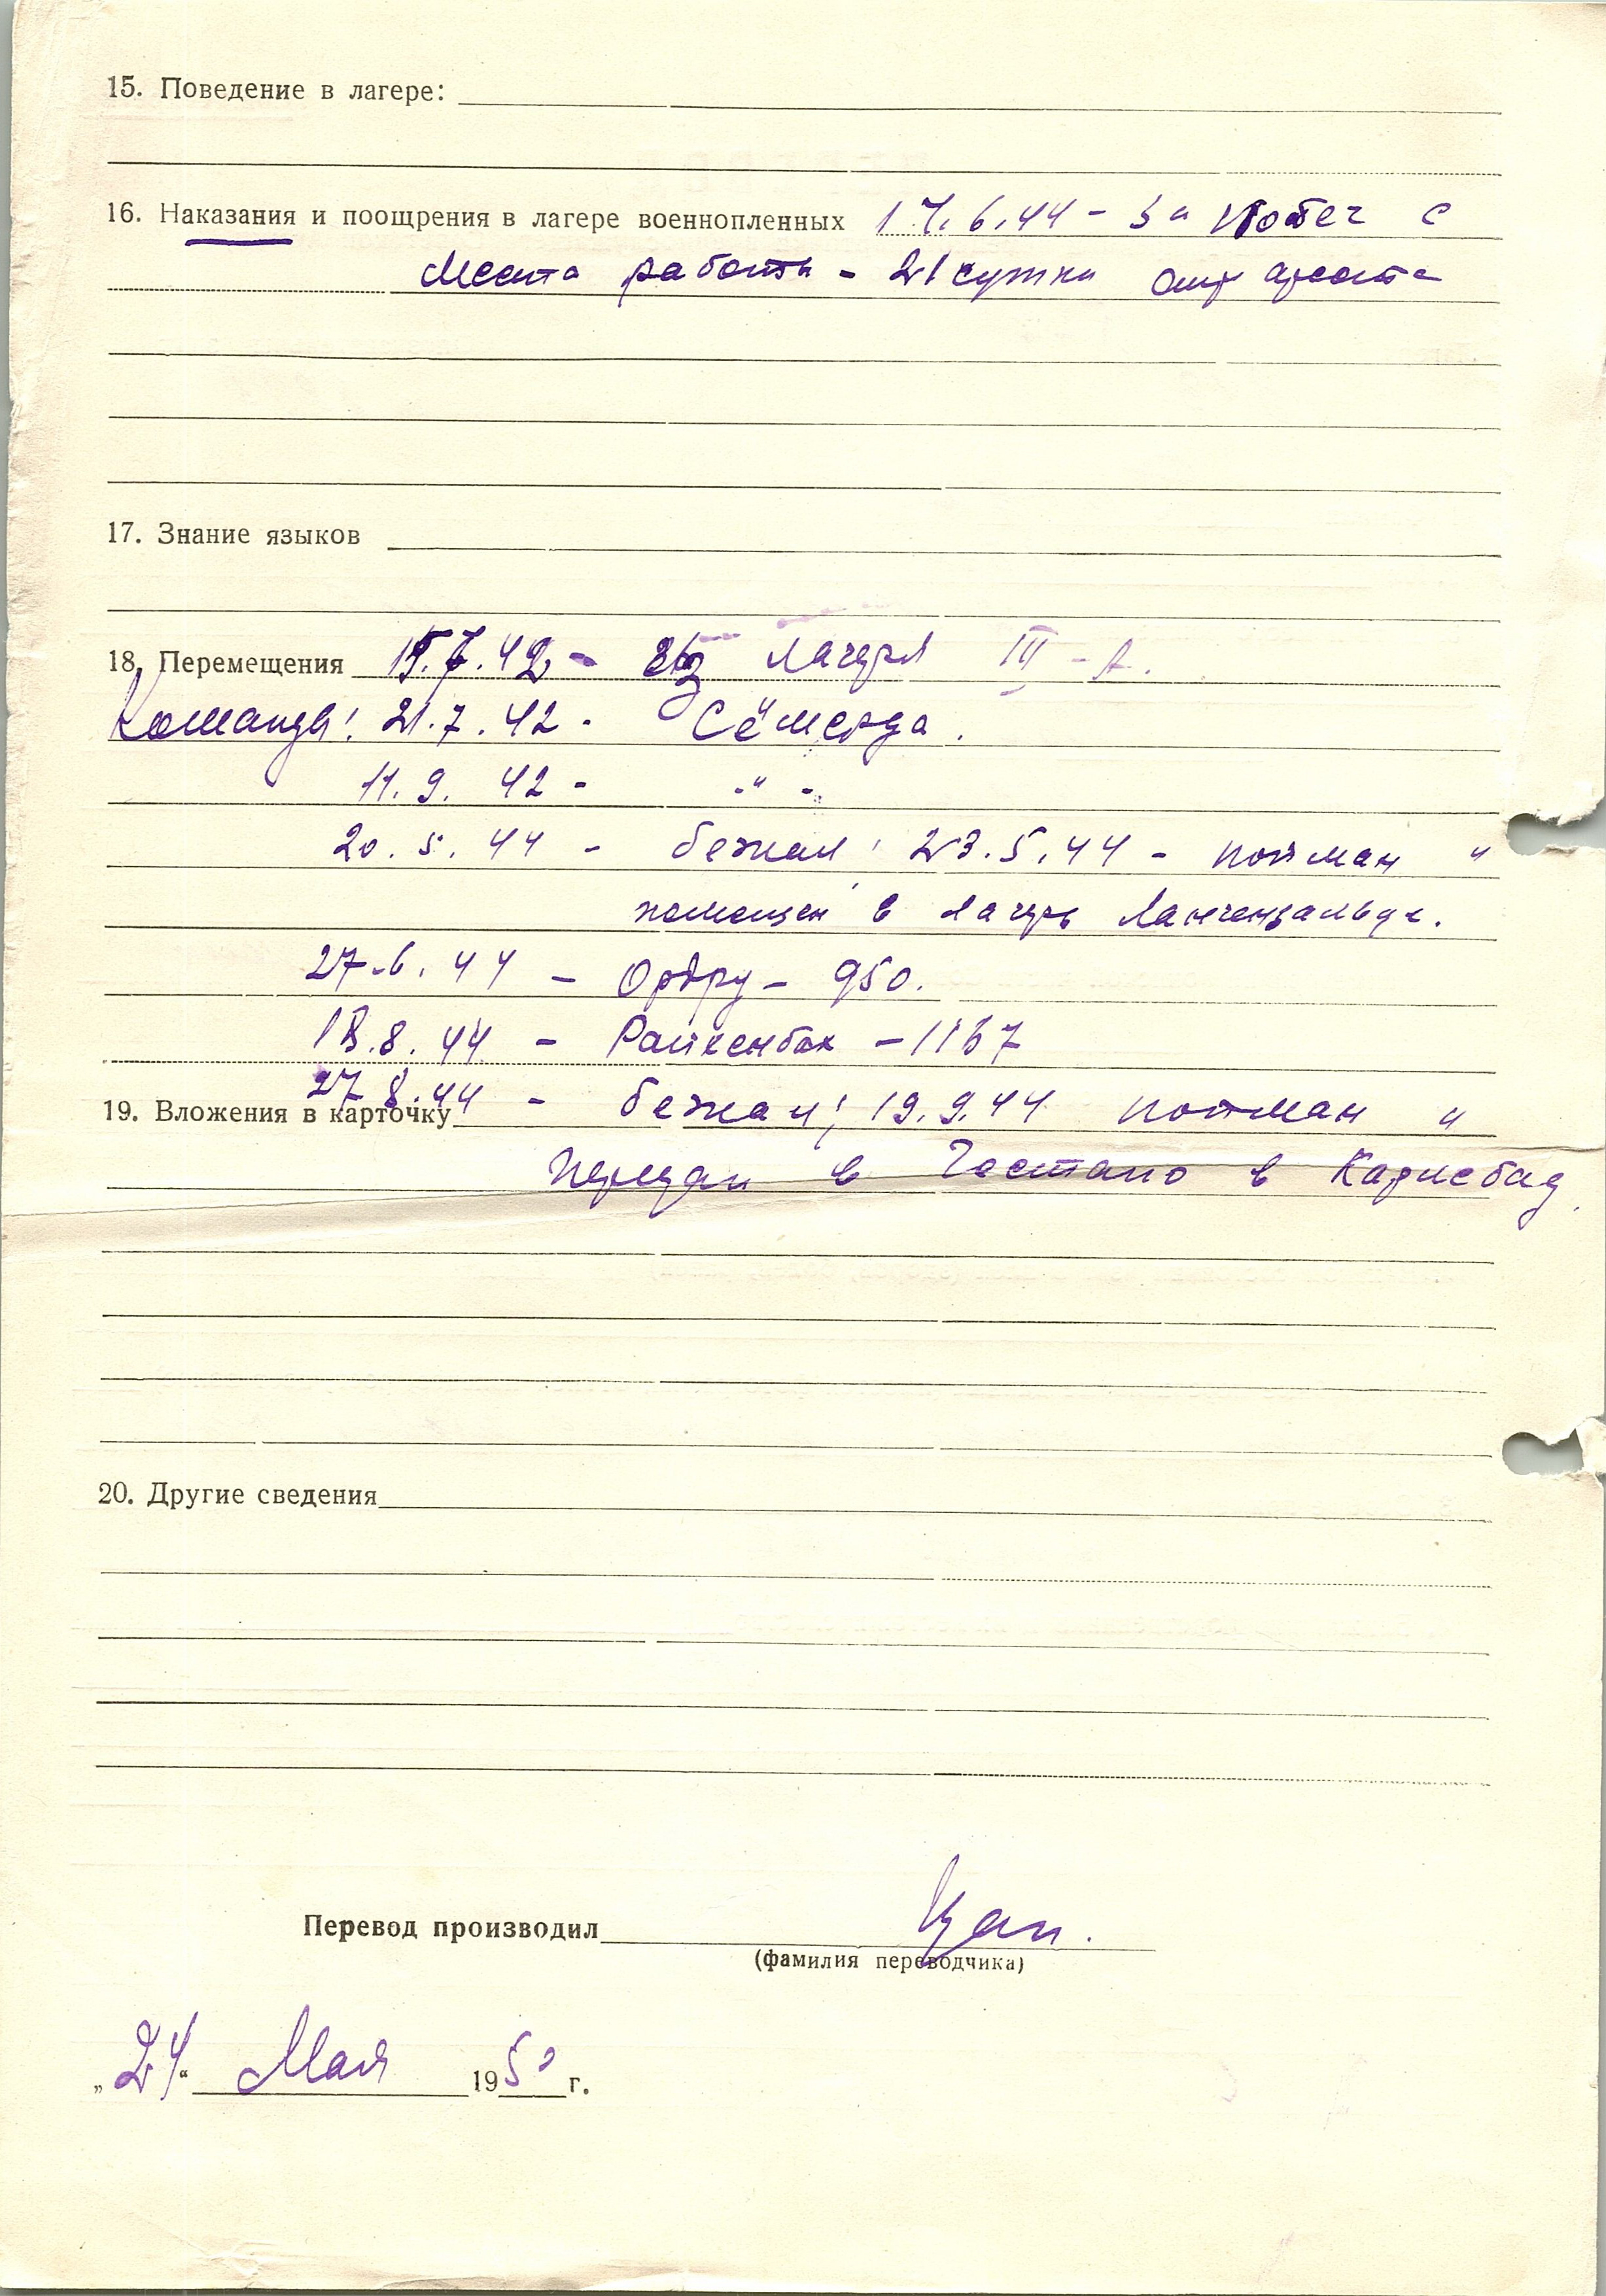 15. Поведение в лагере:
16. Наказания и поощрения в лагере военнопленных 17.6.44 - За Побег с
Места работы - 21 сутки ареста
17. Знание языков
18. Перемещения 15.7.42 - из лагеря III - A.
Команды: 21.7.42 - Сёмерда.
11.9.42 - - " -
20.5.44 - бежал; 23.5.44 - пойман и
помещен в лагерь Лангензальца.
27.6.44 - Ордру - 950.
18.8.44 - Райхенбах - 1167
27.8.44 - бежал; 19.9.44 пойман и
19. Вложения в карточку
Передан в Гестапо в Карлсбад.
20. Другие сведения
Перевод производил Цап.
(фамилия переводчика)
„24“ Мая 1950 г.